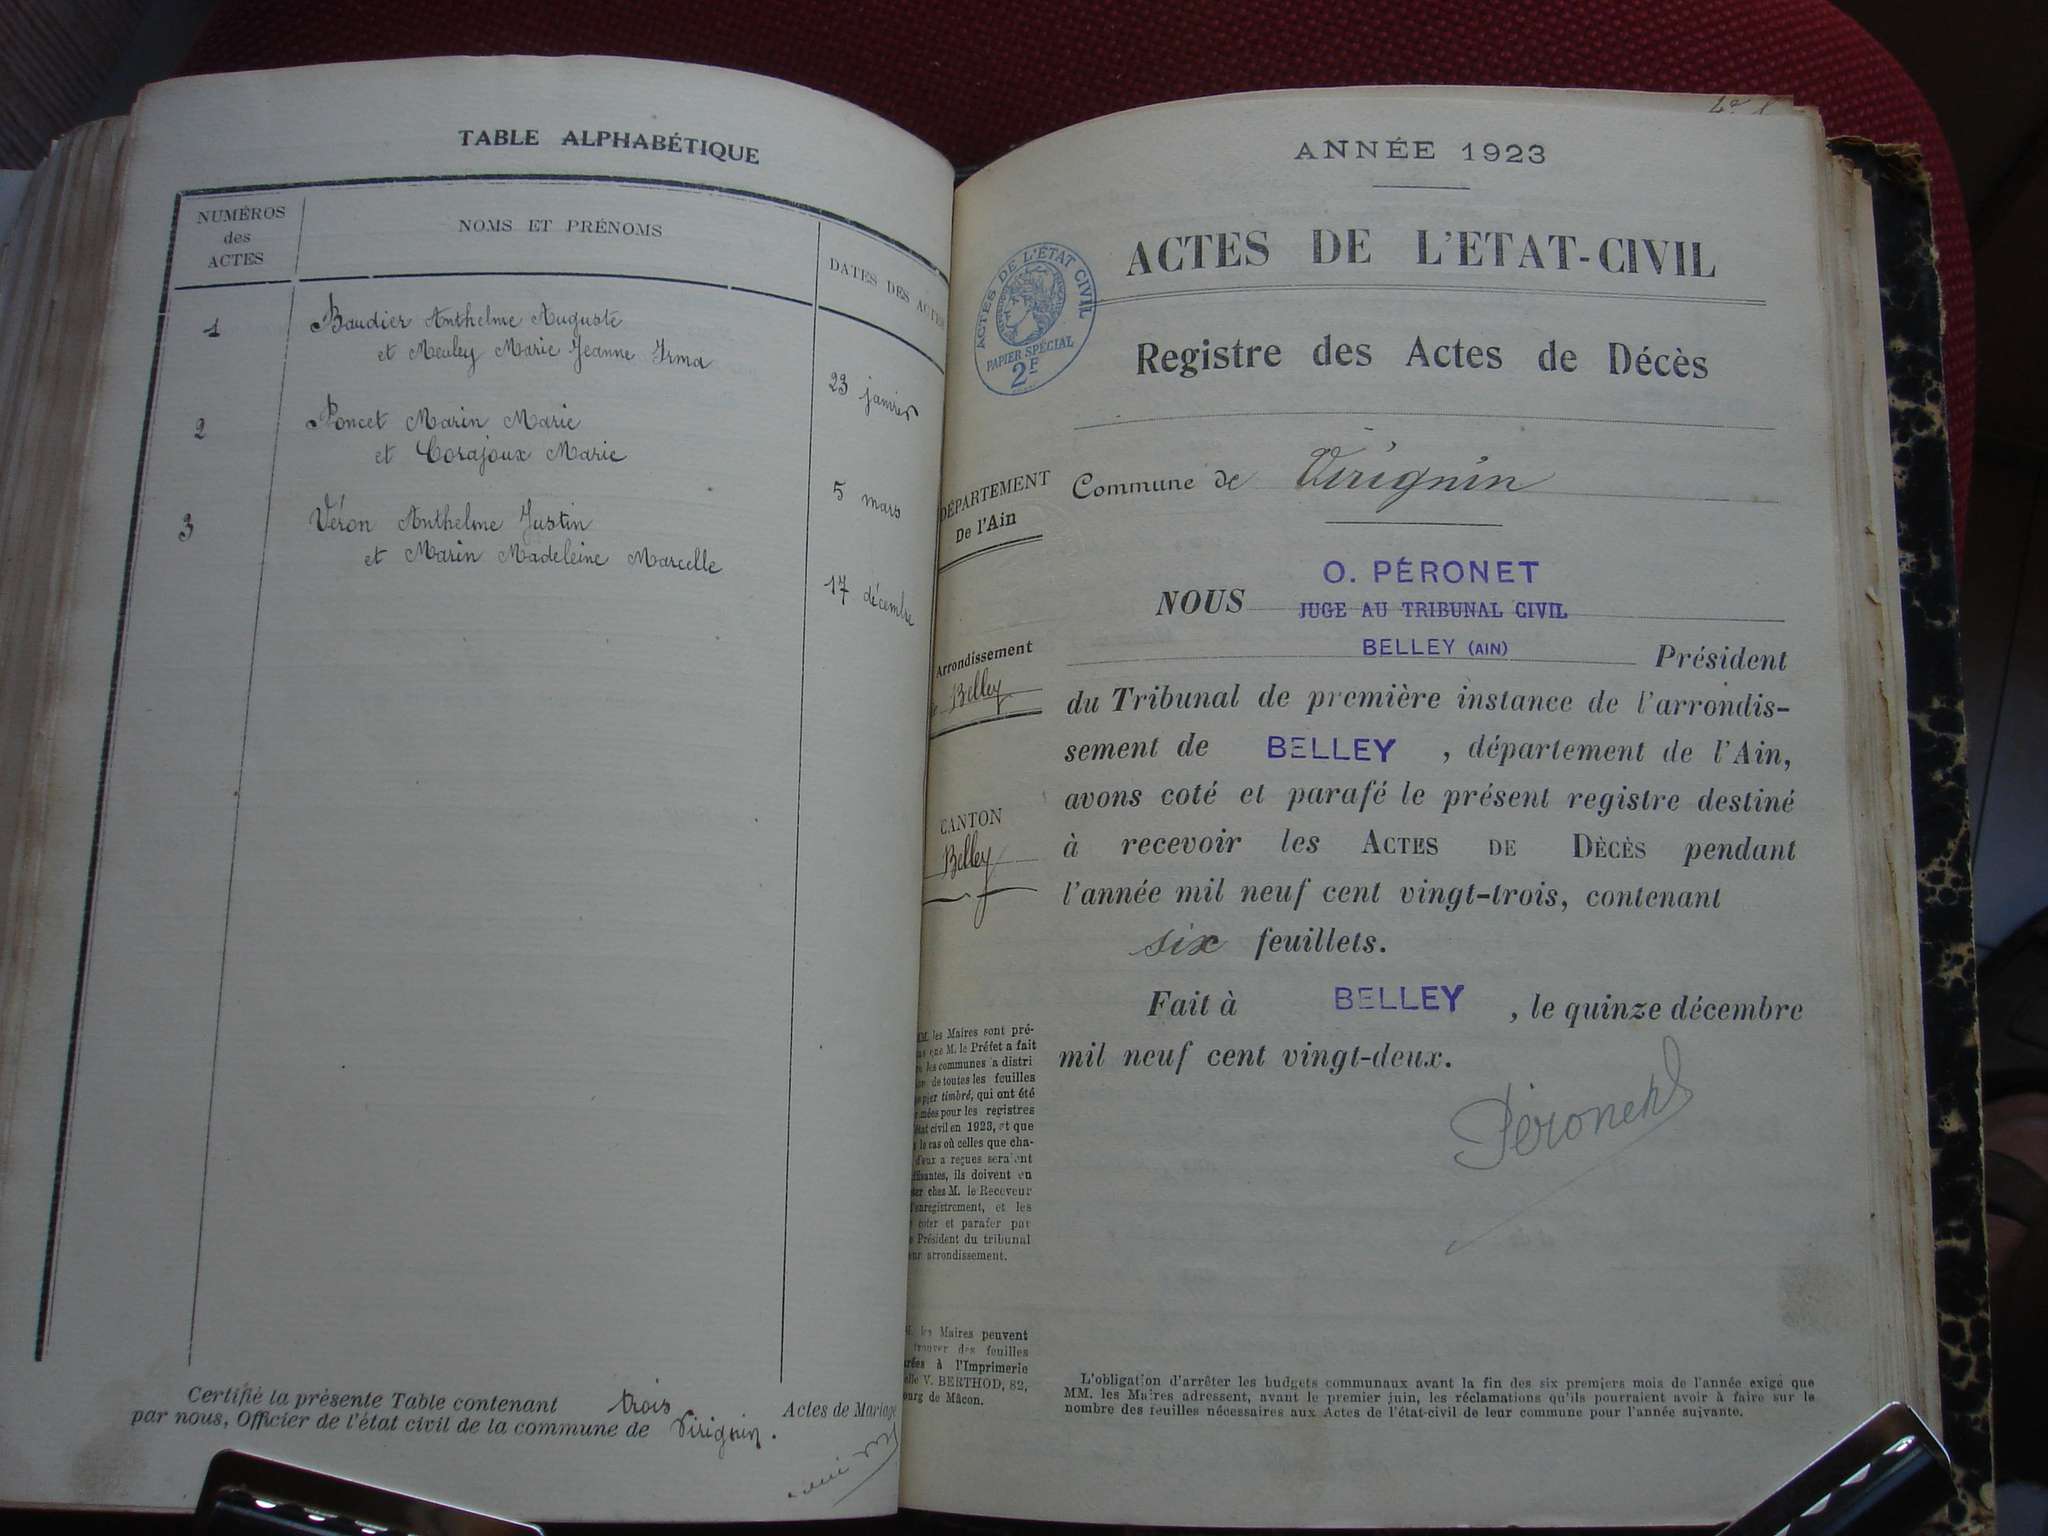 TABLE ALPHABÉTIQUE
NUMÉROS
des
ACTES
NOMS ET PRÉNOMS
DATES DES ACTES
1
Baudier Anthelme Auguste
et Meuley Marie Jeanne Irma
23 janvier
2
Poncet Marin Marie
et Corajoux Marie
5 mars
3
Véron Anthelme Justin
et Marin Madeleine Marcelle
17 décembre
Certifié la présente Table contenant trois Actes de Mariage
par nous, Officier de l'état civil de la commune de Virignin.
ANNÉE 1923
ACTES DE L'ETAT-CIVIL
ACTES DE L'ÉTAT CIVIL
PAPIER SPÉCIAL
2F
Registre des Actes de Décès
DÉPARTEMENT
De l'Ain
Arrondissement
Belley
CANTON
Belley
Commune de Virignin
O. PÉRONET
NOUS JUGE AU TRIBUNAL CIVIL
BELLEY (AIN) Président
du Tribunal de première instance de l'arrondis-
sement de BELLEY, département de l'Ain,
avons coté et parafé le présent registre destiné
à recevoir les ACTES DE DÉCÈS pendant
l'année mil neuf cent vingt-trois, contenant
six feuillets.
Fait à BELLEY, le quinze décembre
mil neuf cent vingt-deux.
Péronet
MM. les Maires sont pré-
que M. le Préfet a fait
les communes a distri
de toutes les feuilles
timbré, qui ont été
pour les registres
civil en 1923, et que
le cas où celles que cha-
d'eux a reçues seraient
ils doivent en
chez M. le Receveur
l'enregistrement, et les
coter et parafer par
Président du tribunal
arrondissement.
les Maires peuvent
trouver des feuilles
à l'Imprimerie
V. BERTHOD, 82,
de Mâcon.
L'obligation d'arrêter les budgets communaux avant la fin des six premiers mois de l'année exige que
MM. les Maires adressent, avant le premier juin, les réclamations qu'ils pourraient avoir à faire sur le
nombre des feuilles nécessaires aux Actes de l'état-civil de leur commune pour l'année suivante.